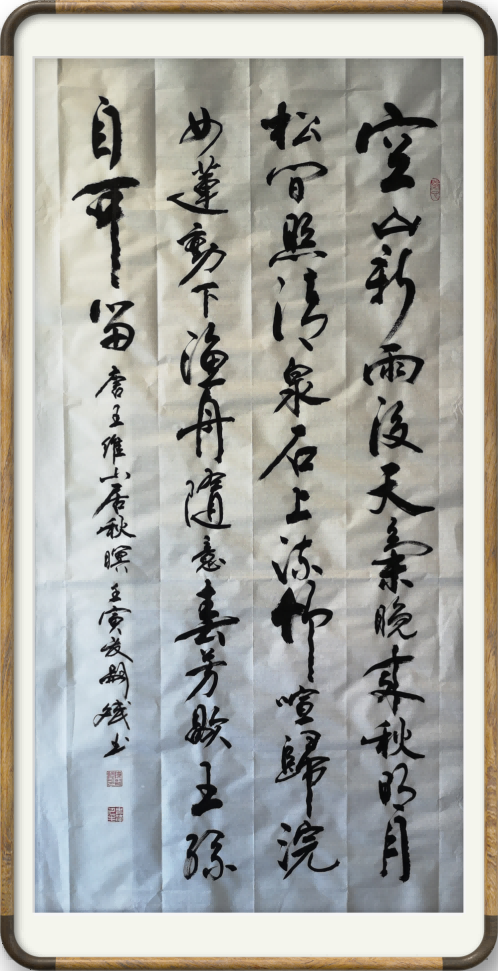 空山新雨後天氣晚來秋明月
松間照清泉石上流竹喧歸浣
女蓮動下漁舟隨意春芳歇王孫
自可留 唐王維山居秋暝 壬寅 斌书